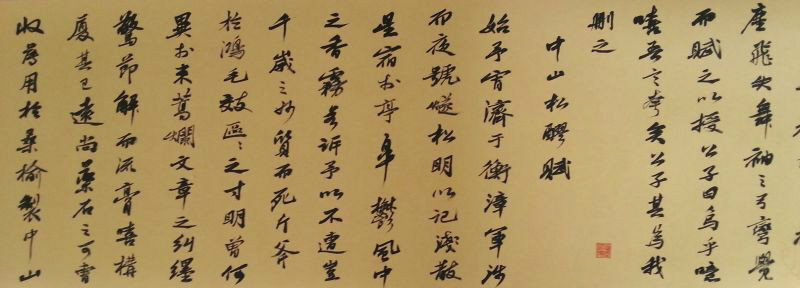 塵飛失舞袖之弓彎覺
而賦之以授公子曰烏乎噫
嘻吾言夸矣公子其為我
刪之
中山松醪賦
始予宵濟于衡漳軍涉
而夜號燧松明以記淺散
星宿於亭皋鬱風中
之香霧若訴予以不遭豈
千歲之妙質而死斤斧
於鴻毛效區〻之寸明曾何
異於束蒿爛文章之糾纆
驚節解而流膏嘻構
厦其已遠尚藥石之可曹
收薄用於桑榆製中山